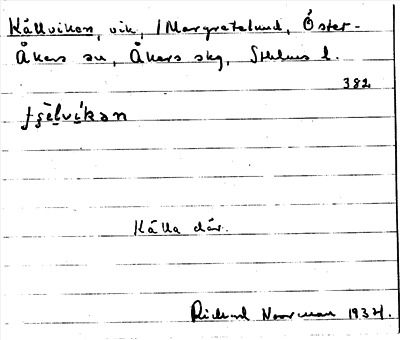 Källvikan, vik, /Margretelund, Öster-
Åkers sn, Åkers skg, Sthlms l.
382
Källa där.
Rickard Norrman 1934.